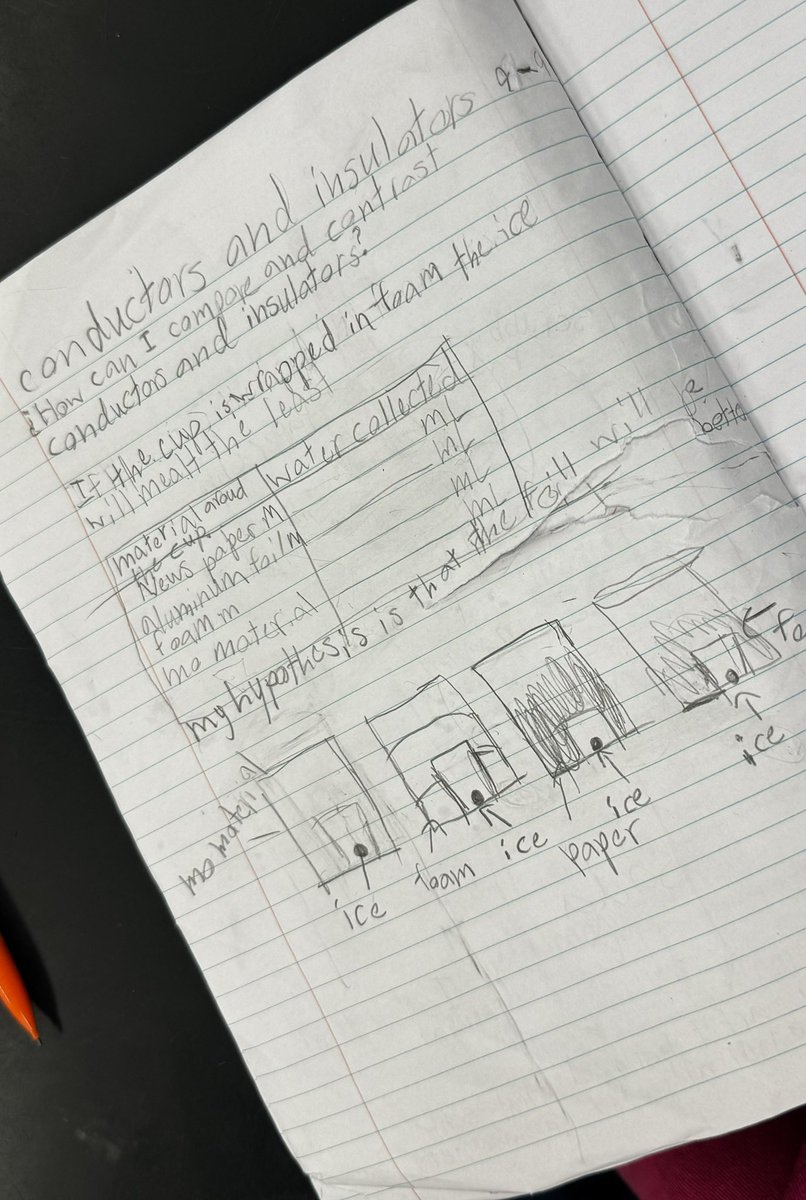 conductors and insulators 9-9
¿How can I compare and contrast
conductors and insulators?
If the cup is wrapped in foam the ice
will mealt the least
material aroud the cup water collected
News paper m mL
aluminum foil m mL
foam m mL
mo material mL
my hypothesis is that the foill will be bette
mo material
ice
foam
ice
paper
ice
fo
ice